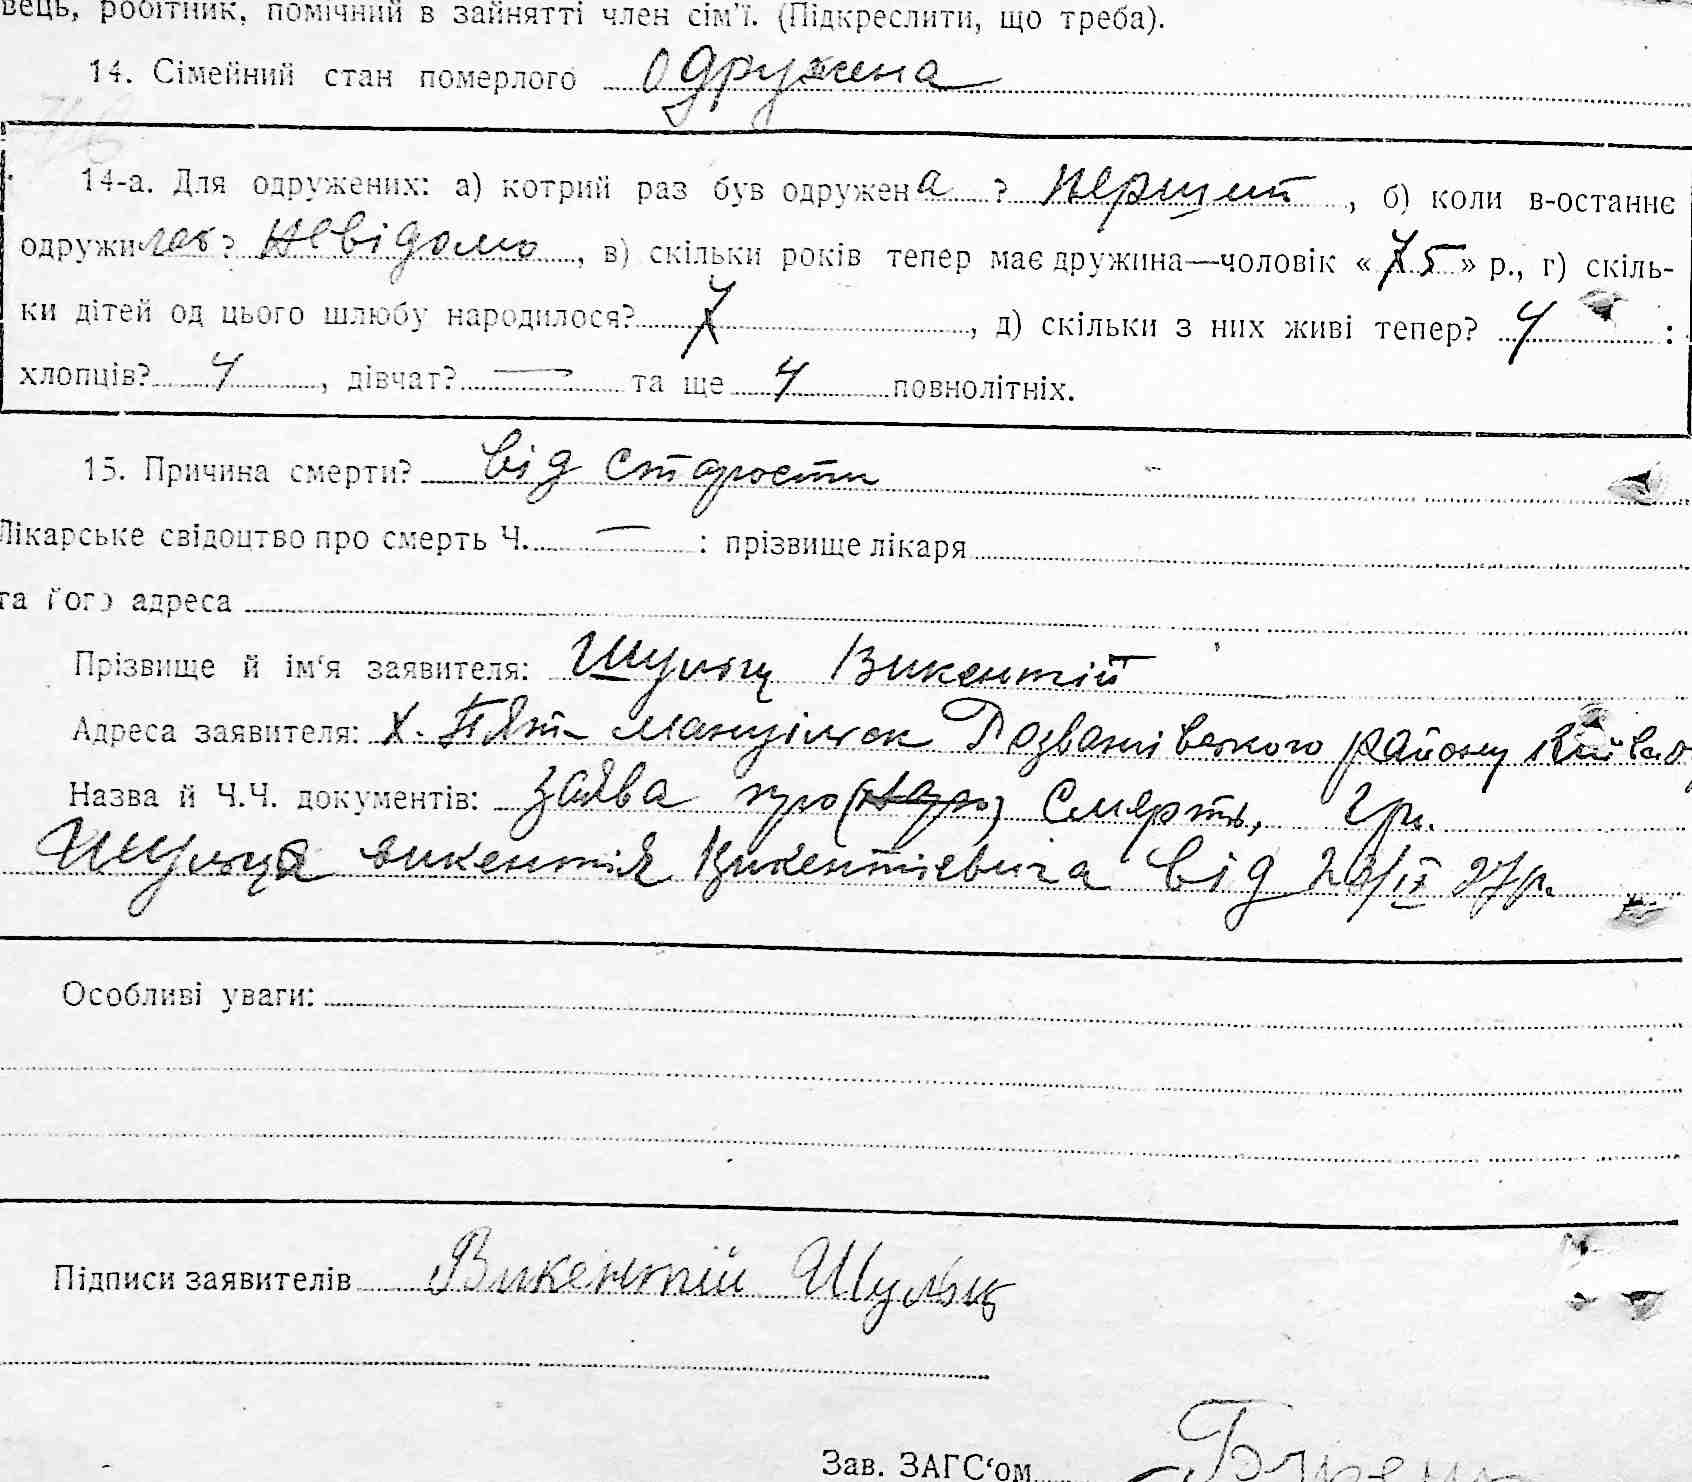 вець, робітник, помічний в зайнятті член сім'ї. (Підкреслити, що треба).
14. Сімейний стан померлого одружена
14-а. Для одружених: а) котрий раз був одружена ? перший, б) коли в-останнє
одружилась? невідомо, в) скільки років тепер має дружина—чоловік «75» р., г) скіль-
ки дітей од цього шлюбу народилося? 7, д) скільки з них живі тепер? 4 :
хлопців? 4, дівчат? — та ще 4 повнолітніх.
15. Причина смерти? від старости
Лікарське свідоцтво про смерть Ч. — : прізвище лікаря
та його адреса
Прізвище й ім'я заявителя: Шульц Викентій
Адреса заявителя: х. Розважівського району
Назва й Ч.Ч. документів: заява про смерть, гр.
Шульца викентія Викентієвича від 20/IX 27р.
Особливі уваги:
Підписи заявителів Викентій Шульц
Зав. ЗАГС'ом